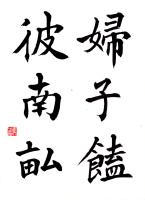 婦子饁
彼南畝